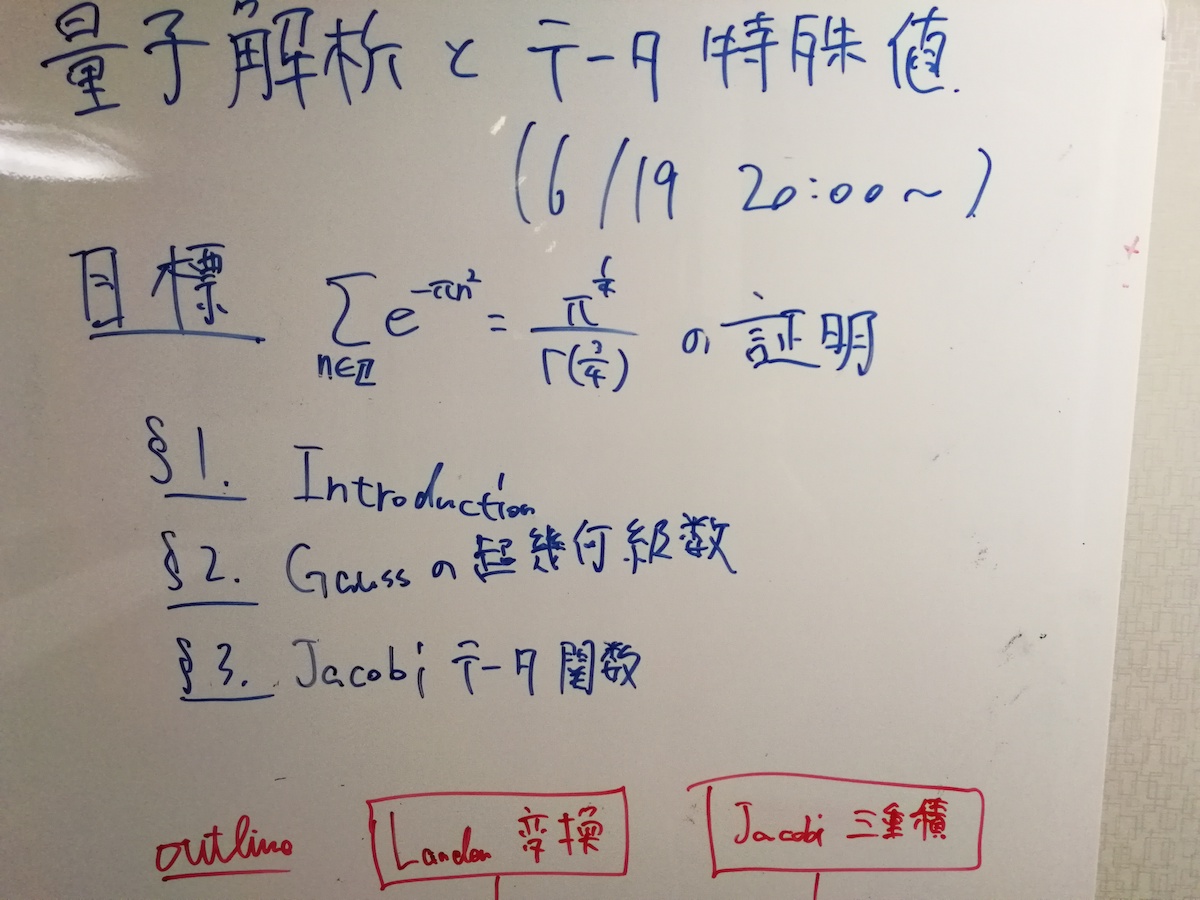 量子解析とテータ特殊値.
(6/19 20:00~)
目標 ∑_{n∈ℤ} e^{-πn²} = π^{1/4} / Γ(3/4) の証明
§1. Introduction
§2. Gaussの超幾何級数
§3. Jacobi テータ関数
outline Landen 変換 Jacobi 三重積